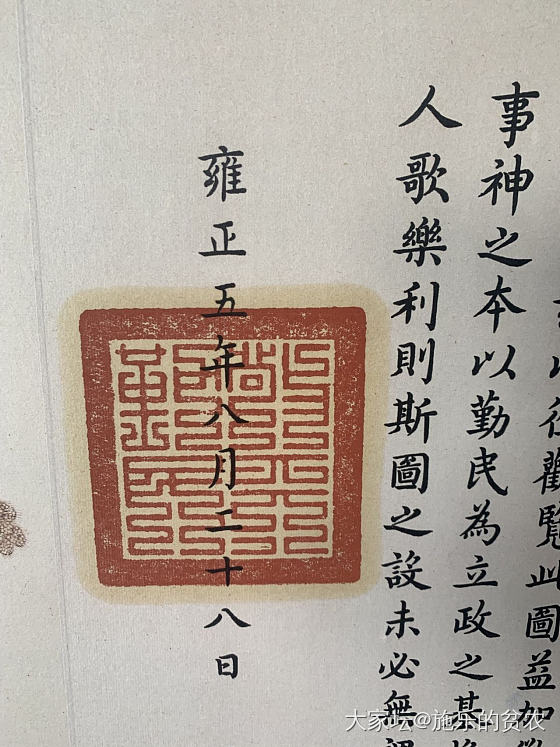 觀覽此圖益加
事神之本以勤民為立政之基
人歌樂利則斯圖之設未必無
雍正五年八月二十八日
大家坛@施乐的贫农